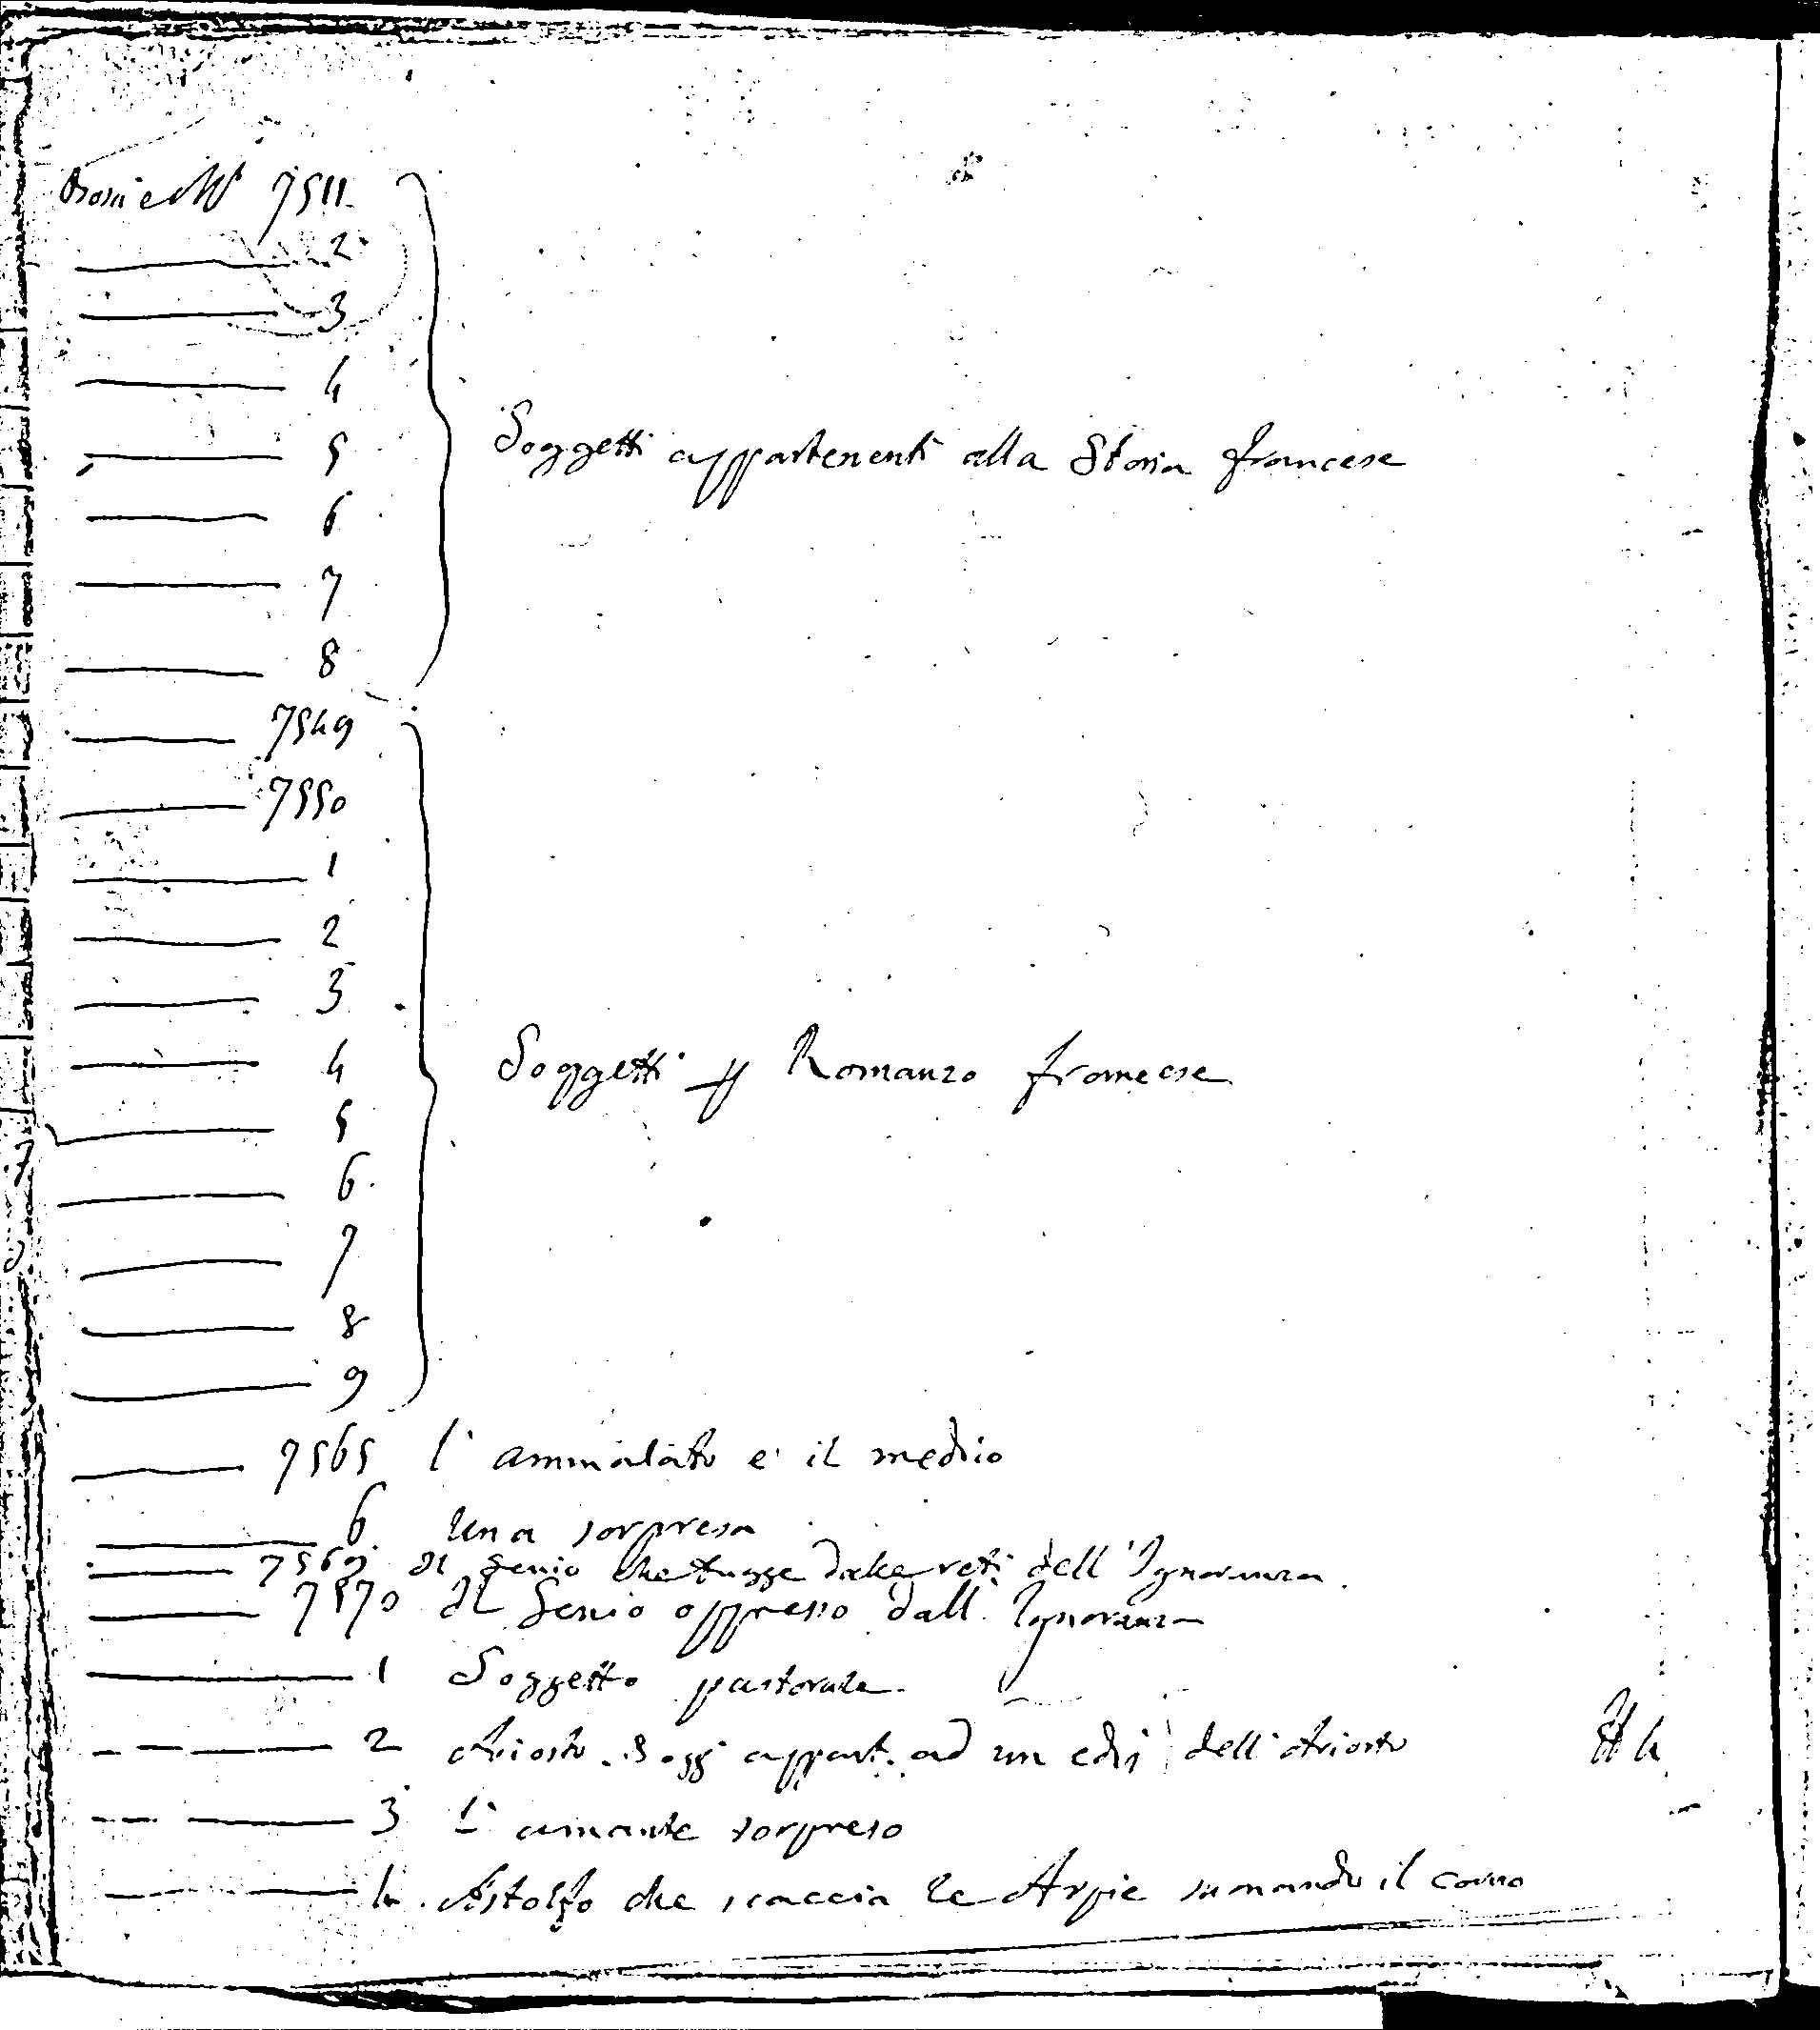 7511
2
3
4
5
Soggetti appartenenti alla Storia francese
6
7
8
7549
7550
1
2
3
4
Soggetti Romanzo francese
5
6
7
8
9
7565 l' ammalato e il medico
6 Una sorpresa
7569 Il Genio che fugge dalle reti dell'Ignoranza
7570 Il Genio oppresso dall'Ignoranza
1 Soggetto pastorale
2 Ariosto. Sogg appart. ad un ediz dell'Ariosto
3 L' amante sorpreso
4 Astolfo che scaccia le Arpie suonando il corno